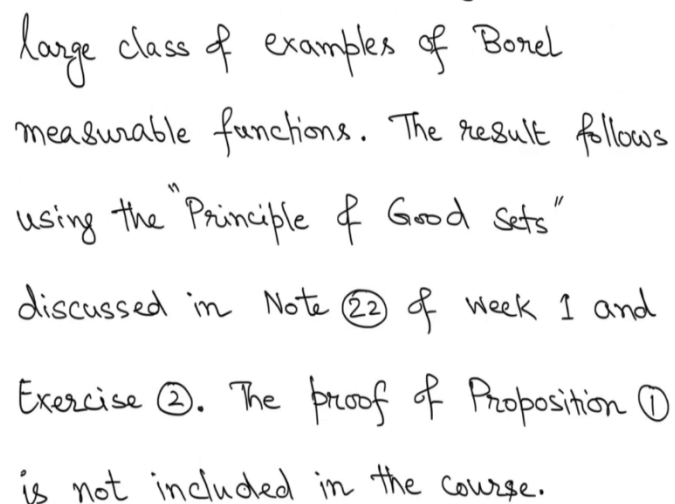 large class of examples of Borel
measurable functions. The result follows
using the "Principle of Good Sets"
discussed in Note 22 of week 1 and
Exercise 2. The proof of Proposition 1
is not included in the course.